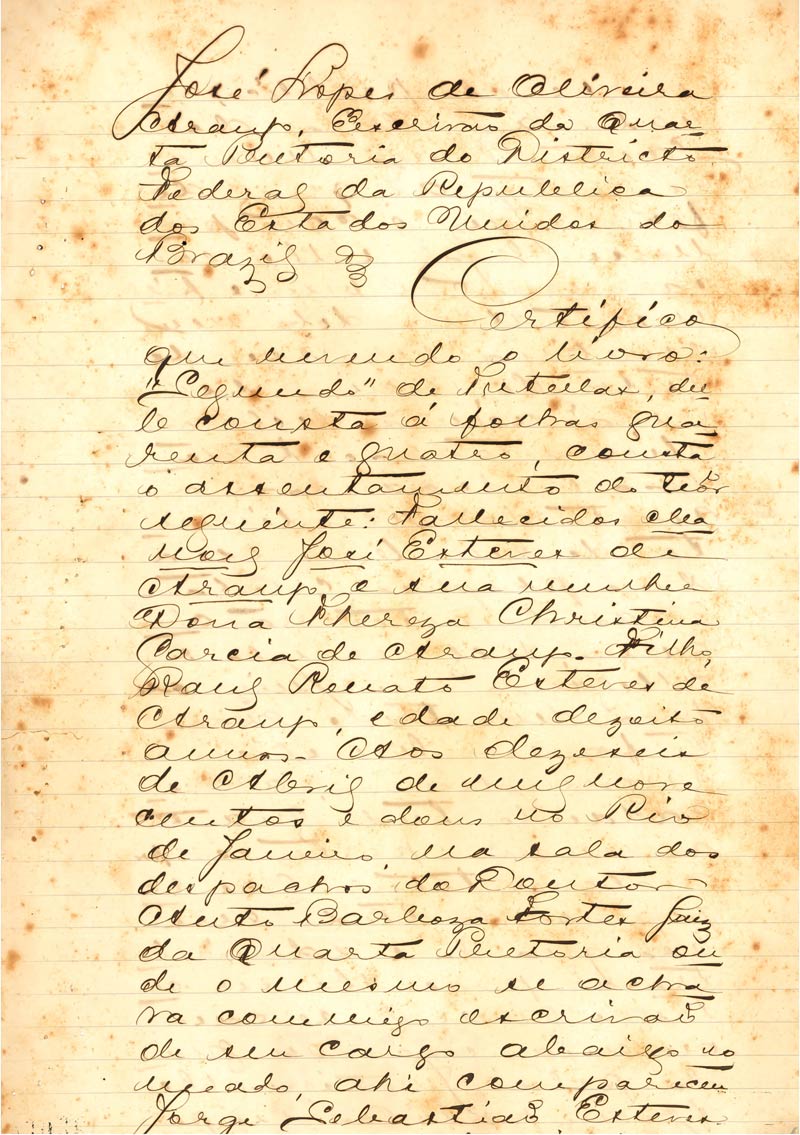 José Lopes de Oliveira
Araujo, Escrivão da Quar-
ta Pretoria do Districto
Federal da Republica
dos Estados Unidos do
Brazil
Certifico
que vendo o livro:
"Segundo" de Tutellas, del-
le consta á folhas qua
renta e quatro, consta
o assentamento do teôr
seguinte: Fallecidos
José Esteves de
Araujo, e sua mulher
Dona Thereza Christina
Garcia de Araujo. Filho,
Raul Renato Esteves de
Araujo, edade dezoito
annos. Aos dezeseis
de Abril de mil nove
centos e dous no Rio
de Janeiro, na sala dos
despachos do Doutor
Barboza Fortes Juiz
da Quarta Pretoria on
de o mesmo se acha
va commigo escrivão
de seu cargo abaixo no
meado, ahi compareceu
Jorge Sebastião Esteves